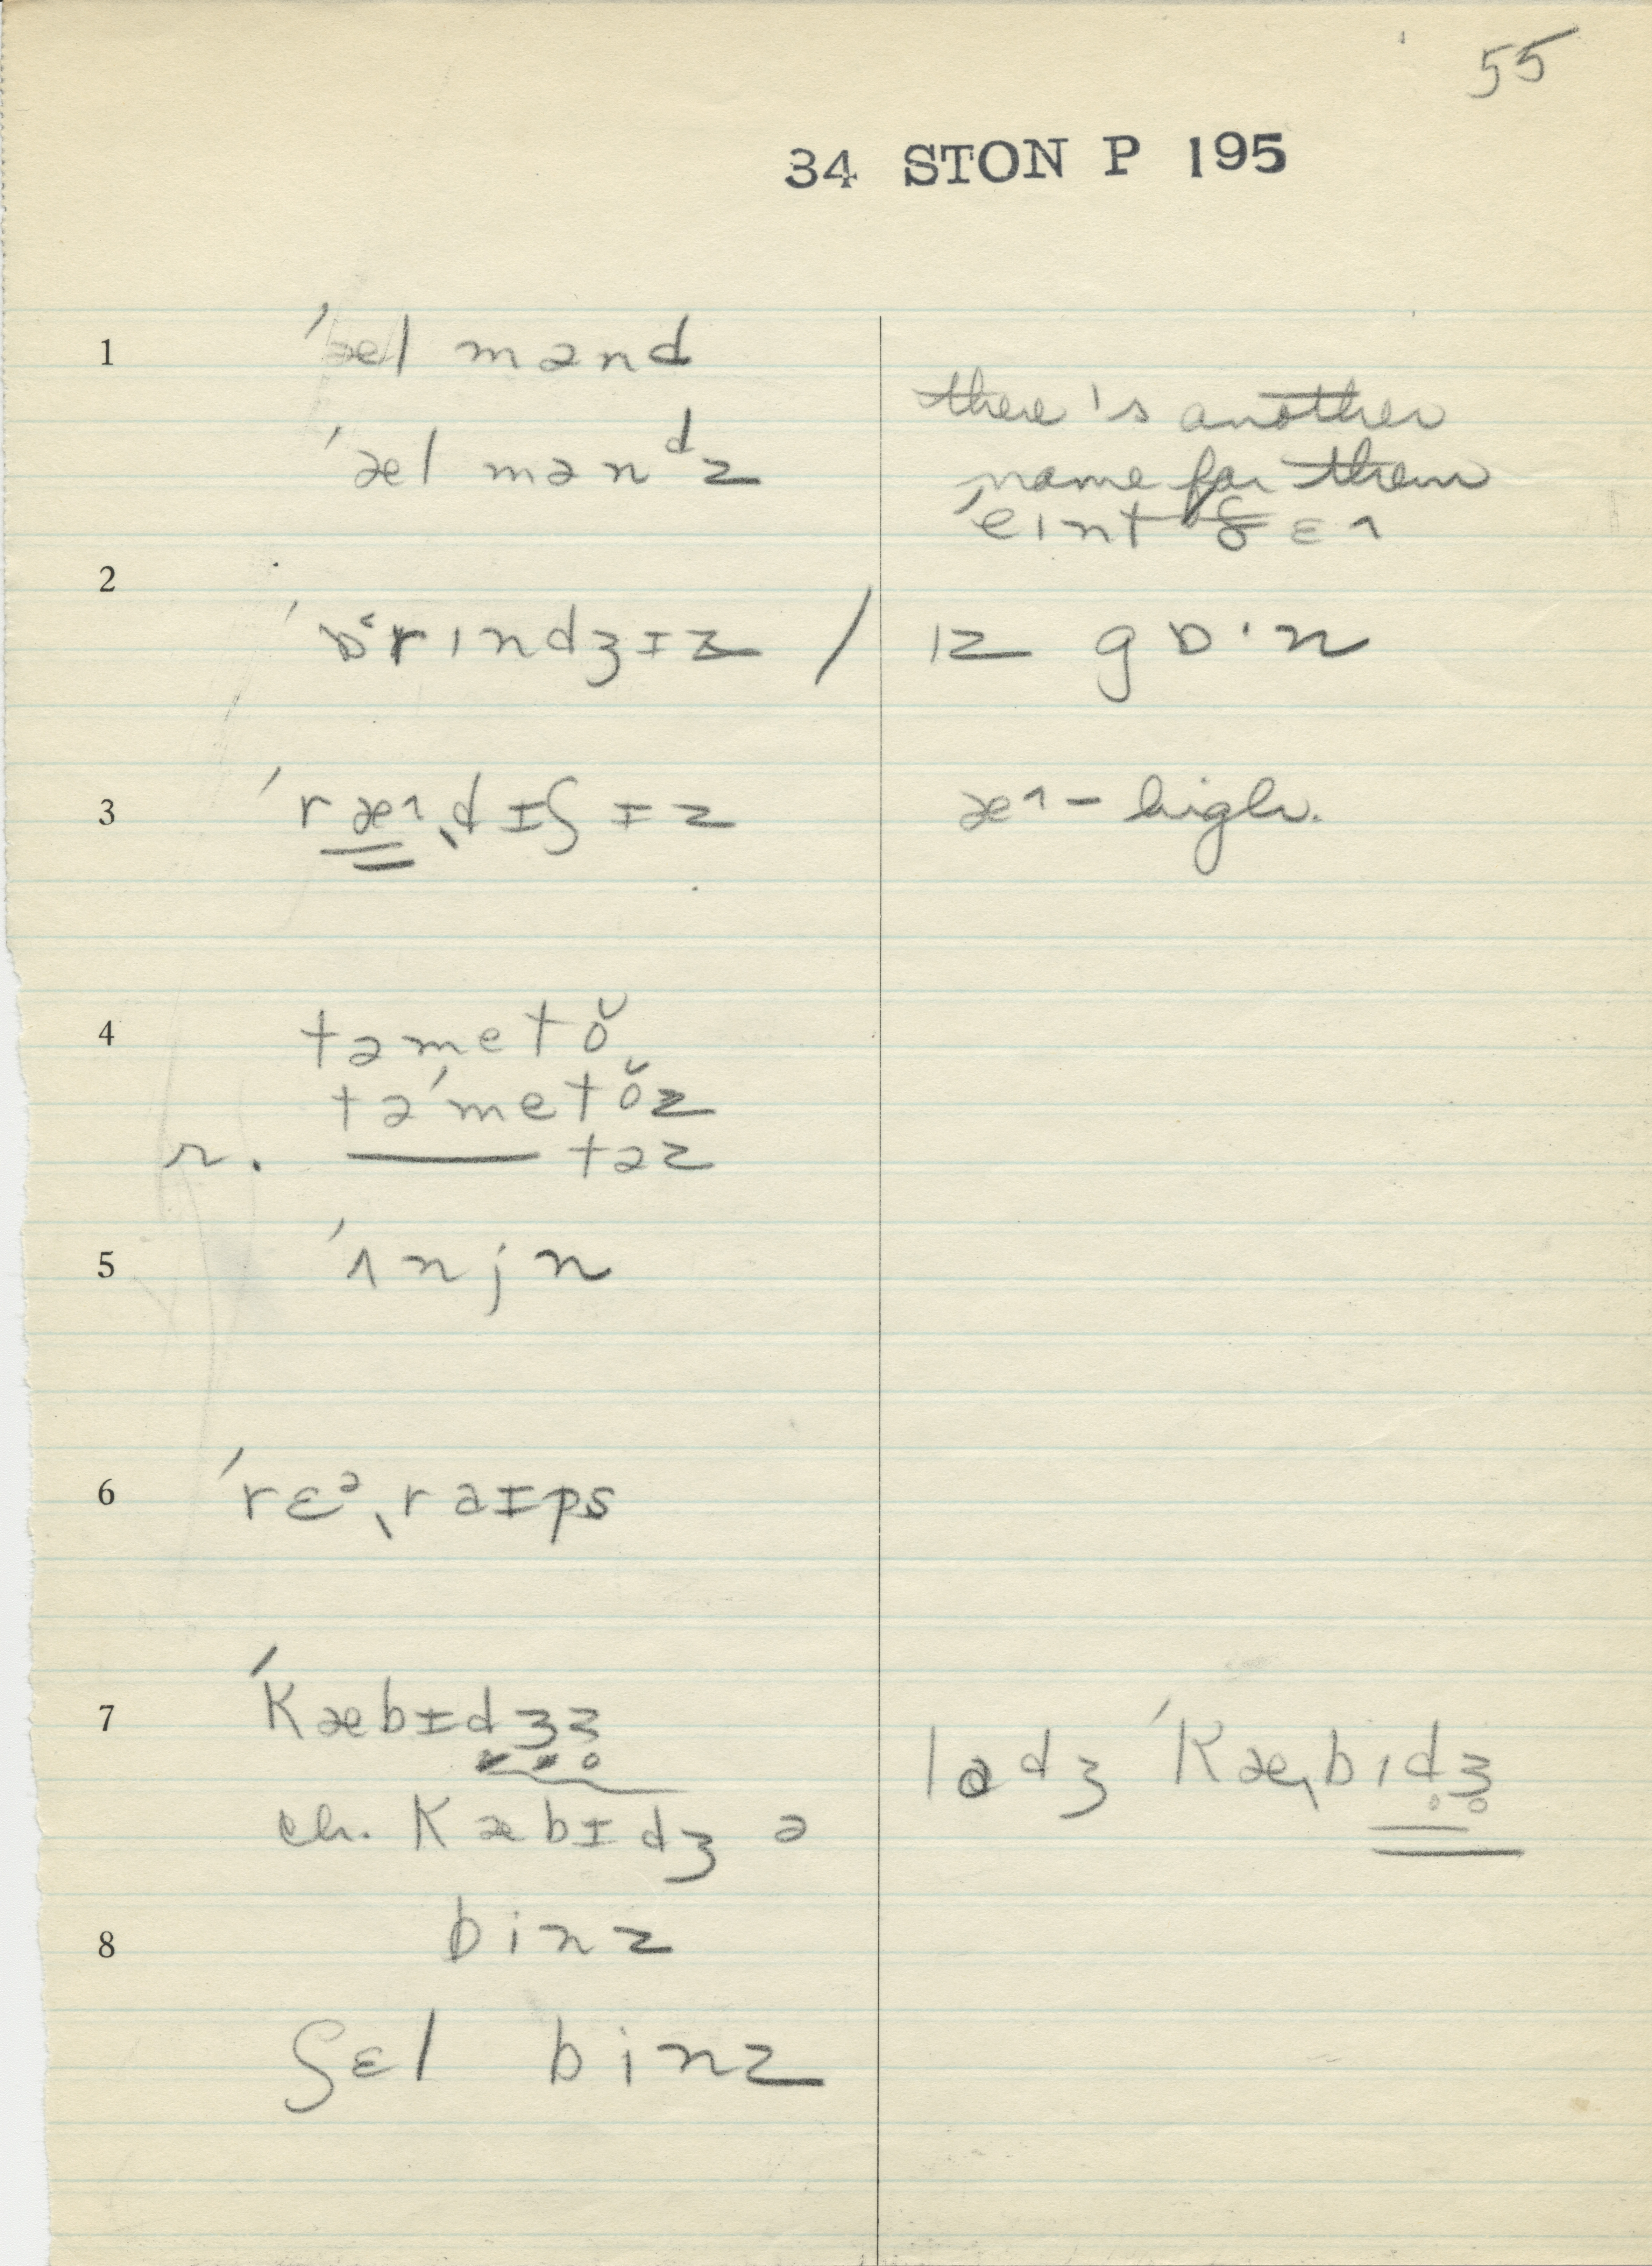 55
34 STON P 195
1 ˈæl mənd
ˈæl mənᵈz
there's another
name for them
ˈeınt ðɛ˄
2
ˈɒ˂rındʒɪz / ız gɒ·n
3 ˈræ˄ˌdɪʃɪz æ˄ – high.
4 təmetŏ
təˈmetŏz
r. —— təz
5 ˈʌnjn
6 ˈrɛᵊˌraɪps
7 ˈKæbɪdʒʒ̥
ladʒ ˈKæˌbıd̥ʒ̥
ch. Kæbɪdʒ ə
8 binz
ʃɛl binz